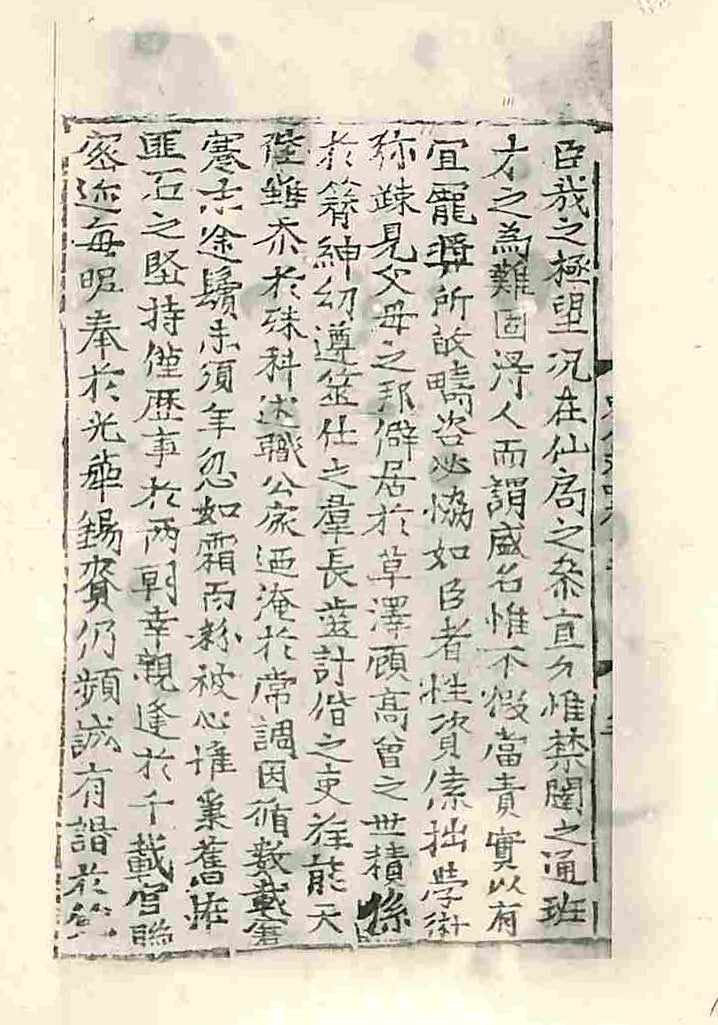 臣哉之極望况在仙局之叅直允惟禁闥之通班
才之為難固淂人而謂盛名惟不假當責實以有
宜寵奬所敀疇咨必恊如臣者性資傃拙學術
弥踈見父母之邦僻居於草澤顧高曾之世積係
於簪紳幼遵筮仕之羣長齒計偕之吏㳺龍天
陛雖忝於殊科述職公家迺淹於常調因循数載
蹇步迷途鬢未須年忽如霜而粉被心惟稟舊恠
匪石之堅持僅歴事於兩朝幸親逢於千載官聮
密迩每昵奉於光華錫賚仍頻誠有諧於